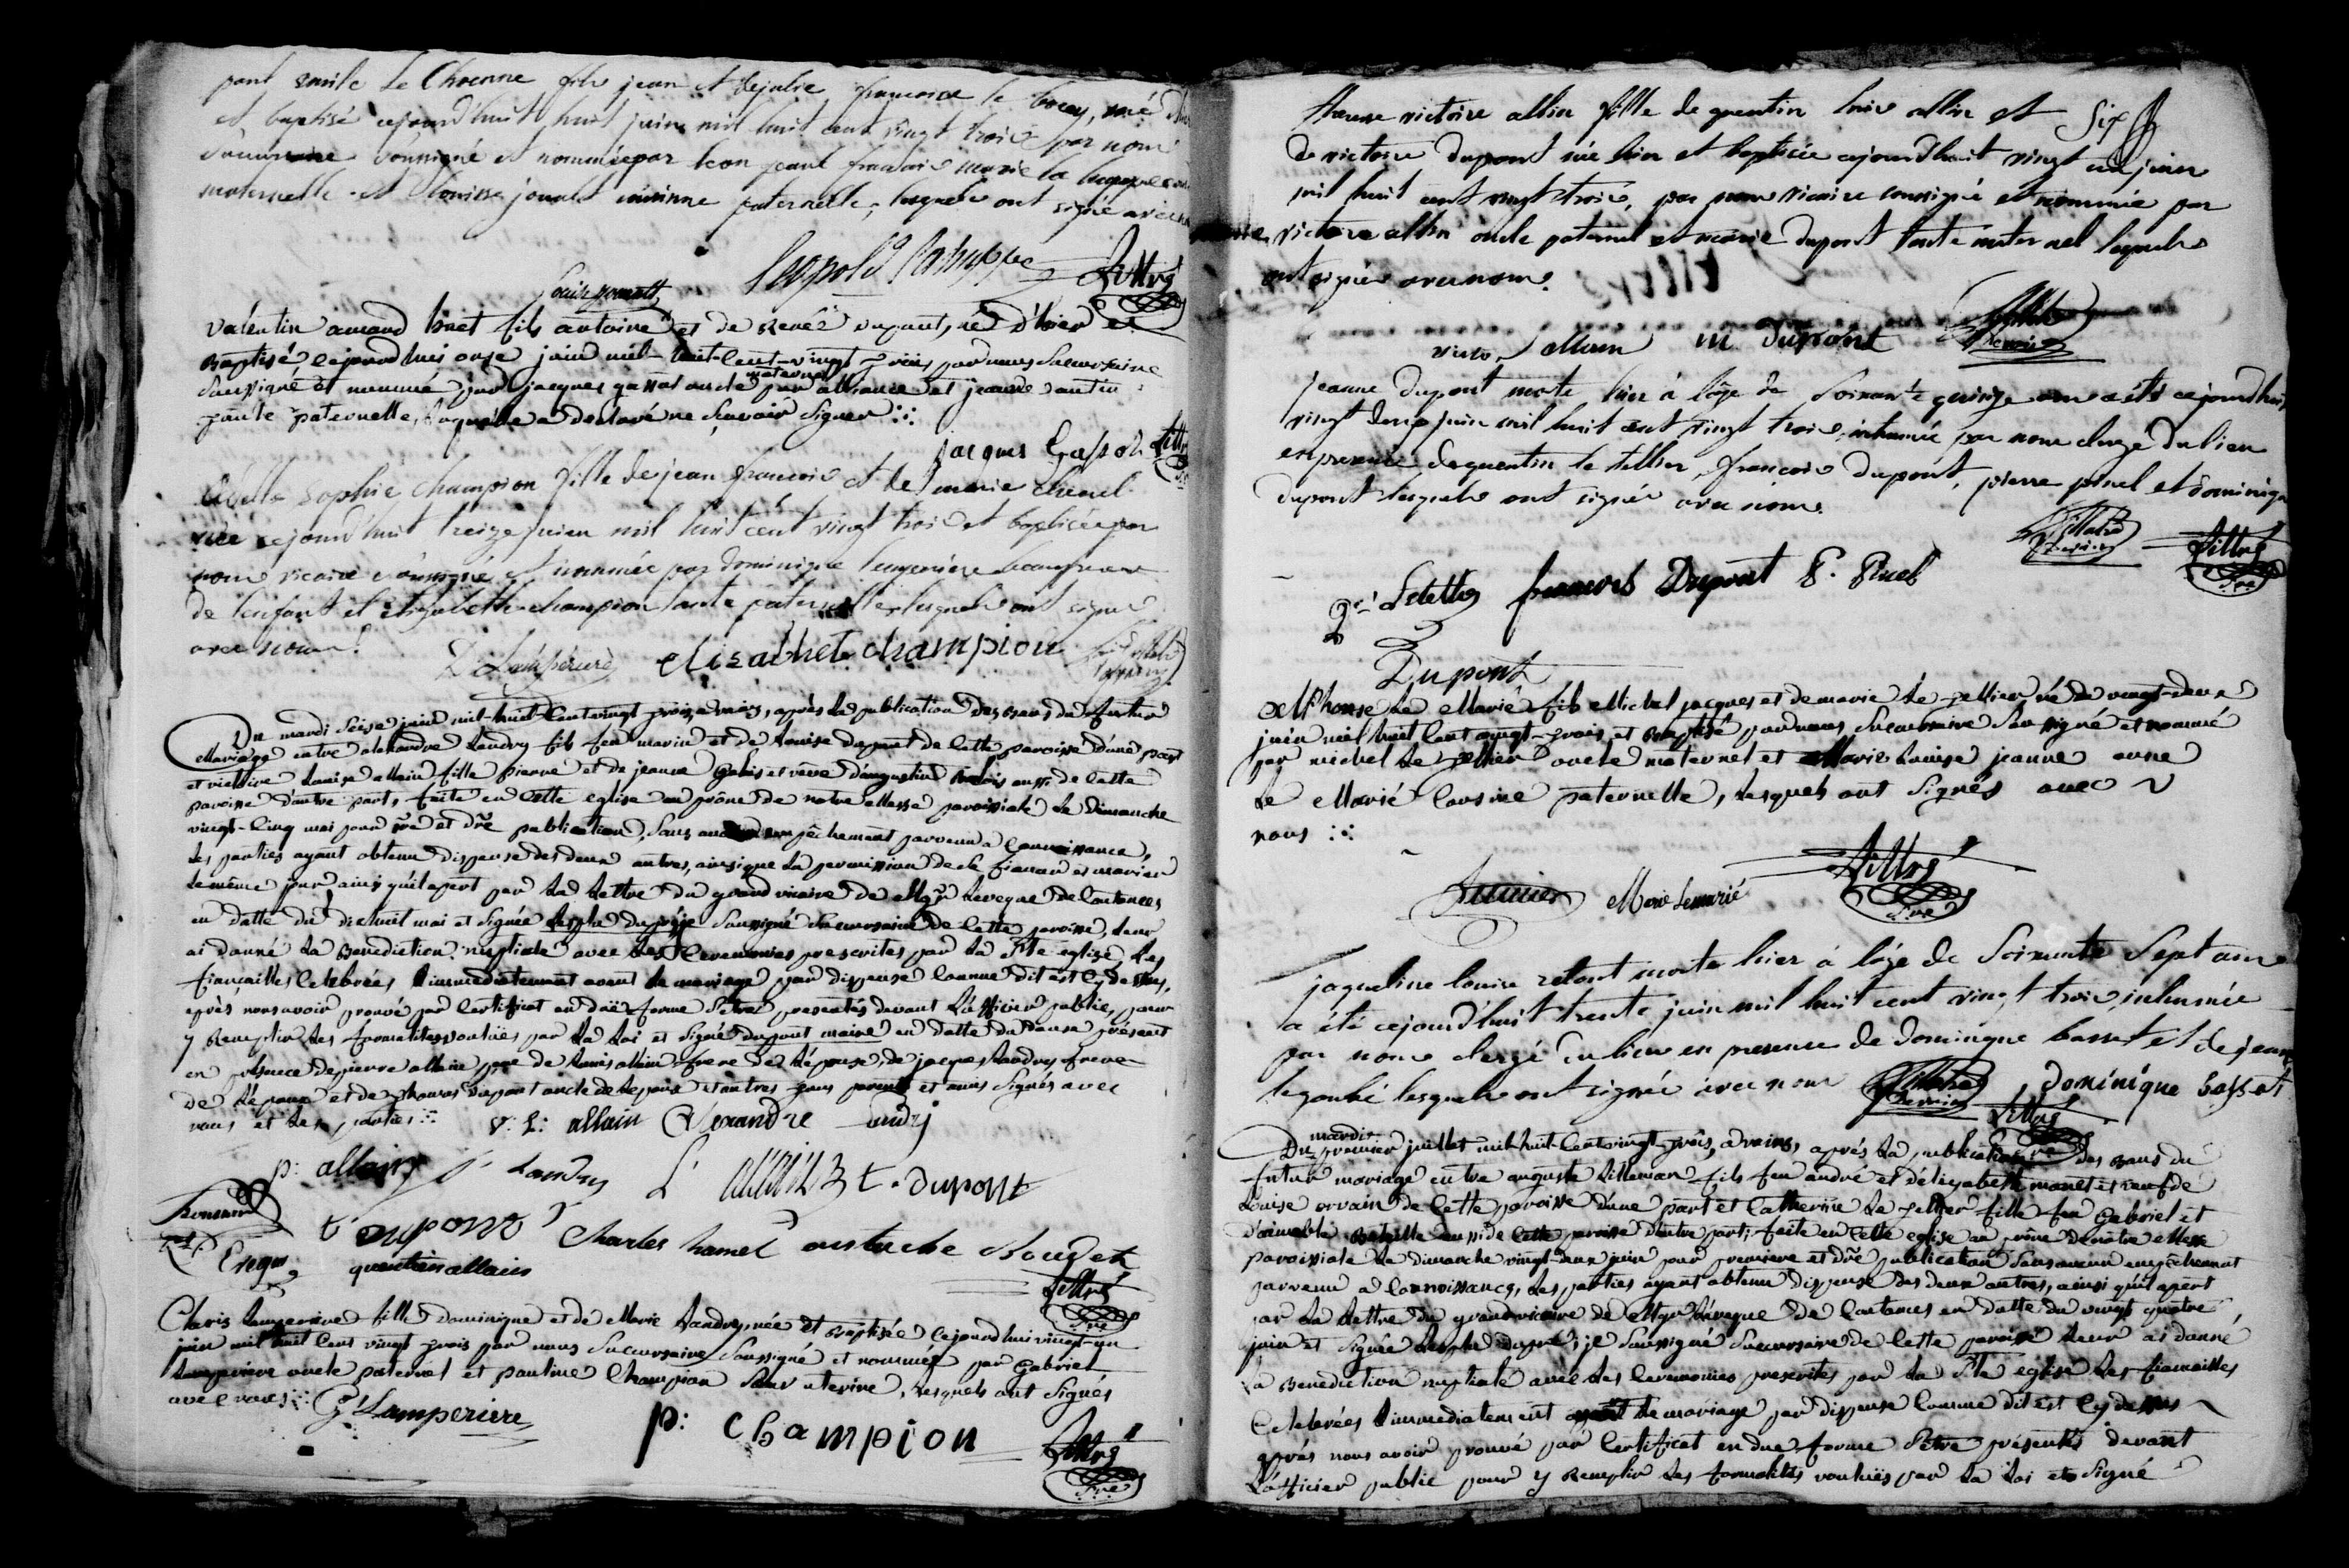 paul emile le Chevenne fils jean et de julie francoise le
et baptisé cejourd'huit huit juin mil huit cent vingt trois par nous
soussigné et nommée par leon paul francois marie la huppe
maternelle et Louise jouault cousinne paternelle, lesquels ont signé avec
Leopold Lahuppe
Fittré
valentin amand huet fils antoine et de renée dupont, né d'hier et
Baptisé cejourd'hui onze juin mil-huit-cent-vingt-trois, par nous Succursaire
Soussigné et nommé par jacques gassot oncle maternel par alliance et jeanne
tante paternelle, Laquelle a declaré ne Sçavoir Signer
jacques Gassot
Sophie Champion fille de jean francois et de marie
née cejourd'huit treize juin mil huit cent vingt trois et baptisée par
nous vicaire soussigné et nommée par dominique lemperiere beau frere
de l'enfant et elizabeth champion tante paternelle lesquels ont signé
avec nous
D Lamperiere elisabhet champion
Du mardi Seise juin mil-huit-cent vingt-trois advins, après la publication des bans du futur
Mariage entre alexandre Landry fils feu marin et de Louise dupont de cette paroisse d'une part
et victoire Louise allain fille pierre et de jeanne et veve d'augustin aussi de cette
paroisse d'autre part, faite en cette eglise au prône de notre Messe paroissiale Le Dimanche
vingt-cinq mai pour pre et dre publication, Sans aucun empêchement parvenu a connoissance,
Les parties ayant obtenu dispense des deux autres, ainsi que La permission de se fiancer et marier
le même jour ainsi qu'il apert par La Lettre du grand vicaire de Mgr L'eveque de Coutances
en datte du dixhuit mai et Signée je Soussigné Succursaire de cette paroisse, Leur
ai donné La Benediction nuptiale avec Les Ceremonies prescrites par La Ste eglise, Les
fiançailles Celebrées immediatement avant Le mariage par dispense Comme dit est Cydessus,
après nous avoir prouvé par Certificat en due forme S'être presentés devant L'officier public, pour
y Remplir Les formalités voulües par La Loi et Signé dupont maire en datte du douse présent
en présence de pierre allain pere de Louis allain frere de L'épouse, de jacques Landry frere
de L'époux et de thomas dupont oncle de L'epoux et autres tous parents et amis Signés avec
nous et Les parties
v: L: allain Alexandre Landri
p: allain J Landry L allain t. dupont
t dupont Charles hamel eustache Boudet
quentin allain
Fittré
Cloris Lamperiere fille dominique et de Marie Landry, née et Baptisée Cejourd'hui vingt-un
juin mil huit Cent vingt trois par nous Succursaire Soussigné et nommée par Gabriel
Lamperiere oncle paternel et pauline Champion Sœur uterine, Lesquels ont Signés
avec nous G Lamperiere
p: Champion
Fittré
victoire allin fille de quentin louis allin et Six
de victoire dupont née hier et baptisée cejourd'huit vingt un juin
mil huit cent vingt trois, par nous vicaire soussigné et nommée par
victoire allin oncle paternel et marie dupont tante maternel lesquels
ont signée avec nous.
allain m Dupont
jeanne dupont morte hier à l'age de Soixante quinze ans a été cejourd'huit
vingt deux juin mil huit cent vingt trois, inhumée par nous clergé du lieu
en presence de quentin le tellier, francois dupont, pierre pinel et dominique
dupont lesquels ont signée avec nous.
Fittré
Letellier francois Dupont P. Pinel
Dupont
Alphonse Le Marié fils Michel jacques et de marie Le Tellier né Le vingt-deux
juin mil huit Cent vingt-trois et Baptisé par nous Succursaire Soussigné et nommé
par michel Le Tellier oncle maternel et Marie Louise jeanne anne
Le Marié Cousine paternelle, Lesquels ont Signés avec
nous
Marie Lemarié
Fittré
Pre
jaqueline louise morte hier à l'age de Soixante Sept ans
a été cejourd'huit trente juin mil huit cent vingt trois, inhumée
par nous clergé du lieu en presence de dominique basset et de jean
legoubé lesquels ont signée avec nous
Dominique Bassot
Fittré
Du mardi premier juillet mil-huit-Cent vingt-trois, advins, après La publication des Bans du
futur mariage entre auguste fils feu andré et d'elizabeth et veuf de
Louise orvain de Cette paroisse d'une part et Catherine Le Tellier fille feu Gabriel et
d'aimable aussi de Cette paroisse d'autre part, faite en Cette eglise au prône de notre Messe
paroissiale Le dimanche vingt-deux juin pour premiere et dre publication Sans aucun empêchement
parvenu a Connoissance, Les parties ayant obtenu dispense des deux autres, ainsi qu'il apert
par La Lettre du grand vicaire de Mgr L'évêque de Coutances en datte du vingt quatre
juin et Signée ; je Soussigné Succursaire de Cette paroisse Leur ai donné
La Benediction nuptiale avec Les Ceremonies prescrites par La Ste eglise Les fiancailles
Celebrées immediatement avant Le mariage par dispense Comme dit est Cydessus
après nous avoir prouvé par Certificat en due forme S'être présentés devant
L'officier public pour y Remplir Les formalités voulües par La Loi et Signé